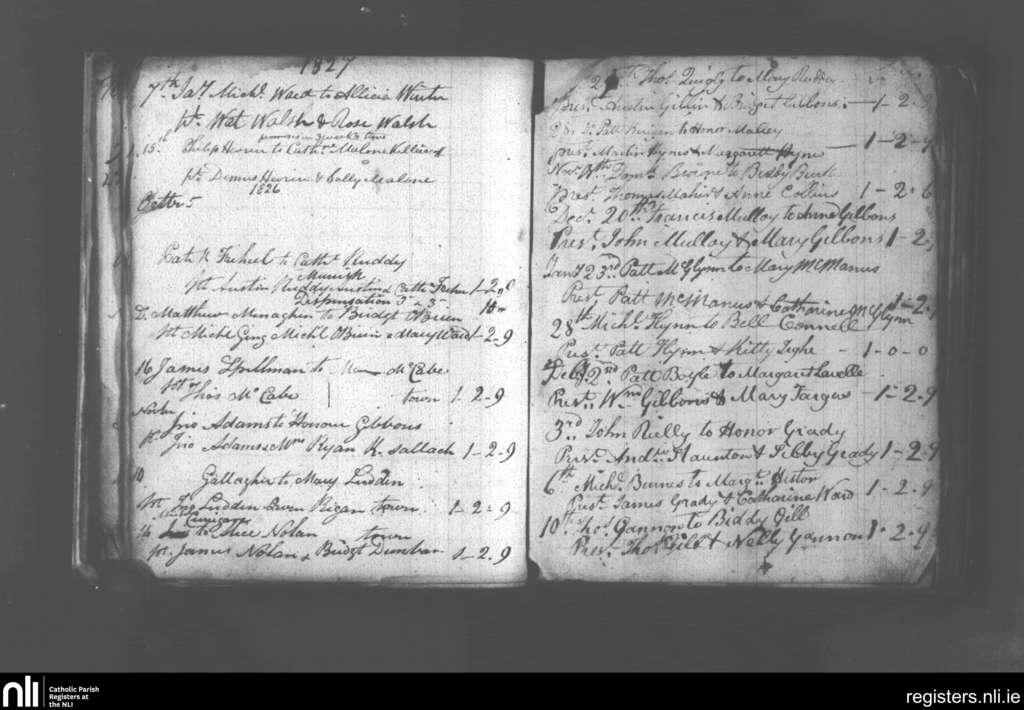 1827
7th Jany Michl. Ward to Allicia Winter
pt. Wat Walsh & Rose Walsh
15. Philip Heveren to Cathe. Malone
pt. Denis Heveren & Sally Malone
1826
Octbr 5
Patk to Cathe. Ruddy
Murrisk
Austin Ruddy 1-2-6
Dispensation
Matthew Monaghan to Bridgt O'Brien
pt Michl O'Brien & Mary Ward 1-2-9
16 James to McCabe
pt Thos McCabe town 1-2-9
Novbr
Jno Adams to Honour Gibbons
pt Jno Adams & Wm Ryan K. sallach 1-2-9
10 Gallagher to Mary Ludden
pt. Ludden Owen town 1-2-9
to Alice Nolan town
pt. James Nolan & Bridgt Dunbar 1-2-9
Thos. Quigly to Mary
prest. Austin & Bridget Gibbons 1-2-9
Do. Do. Patt to Honor Malley
prest. Martin Hynes & Margarett Hyne 1-2-9
Novr. 8th to Biddy Burk
prest. Thomas Maher & Anne Collins 1-2-6
Decr. 20th Francis Mulloy to Anne Gibbons
Prest. John Mulloy & Mary Gibbons 1-2-
Jany 23rd Patt McGlynn to Mary McManus
Prest. Patt McManus & Catharine McGlynn 1-2-
28th Michl. Flynn to Bell Connell
Prest. Patt Flynn & Kitty Tighe - 1-0-0
Feby. 2nd Patt Boyle to Margaret Lavelle
Prest. Wm Gibbons & Mary Fargus - 1-2-9
3rd John Reilly to Honor Grady
Prest. Andw Staunton & Sibby Grady 1-2-9
6th Michl. Burnes to Margt. Hestor
Prest. James Grady & Catharine Ward 1-2-9
10th Thos. Gannon to Biddy Gill
Prest. Thos Gill & Nelly Gannon 1-2-9
nli
Catholic Parish
Registers at
the NLI
registers.nli.ie